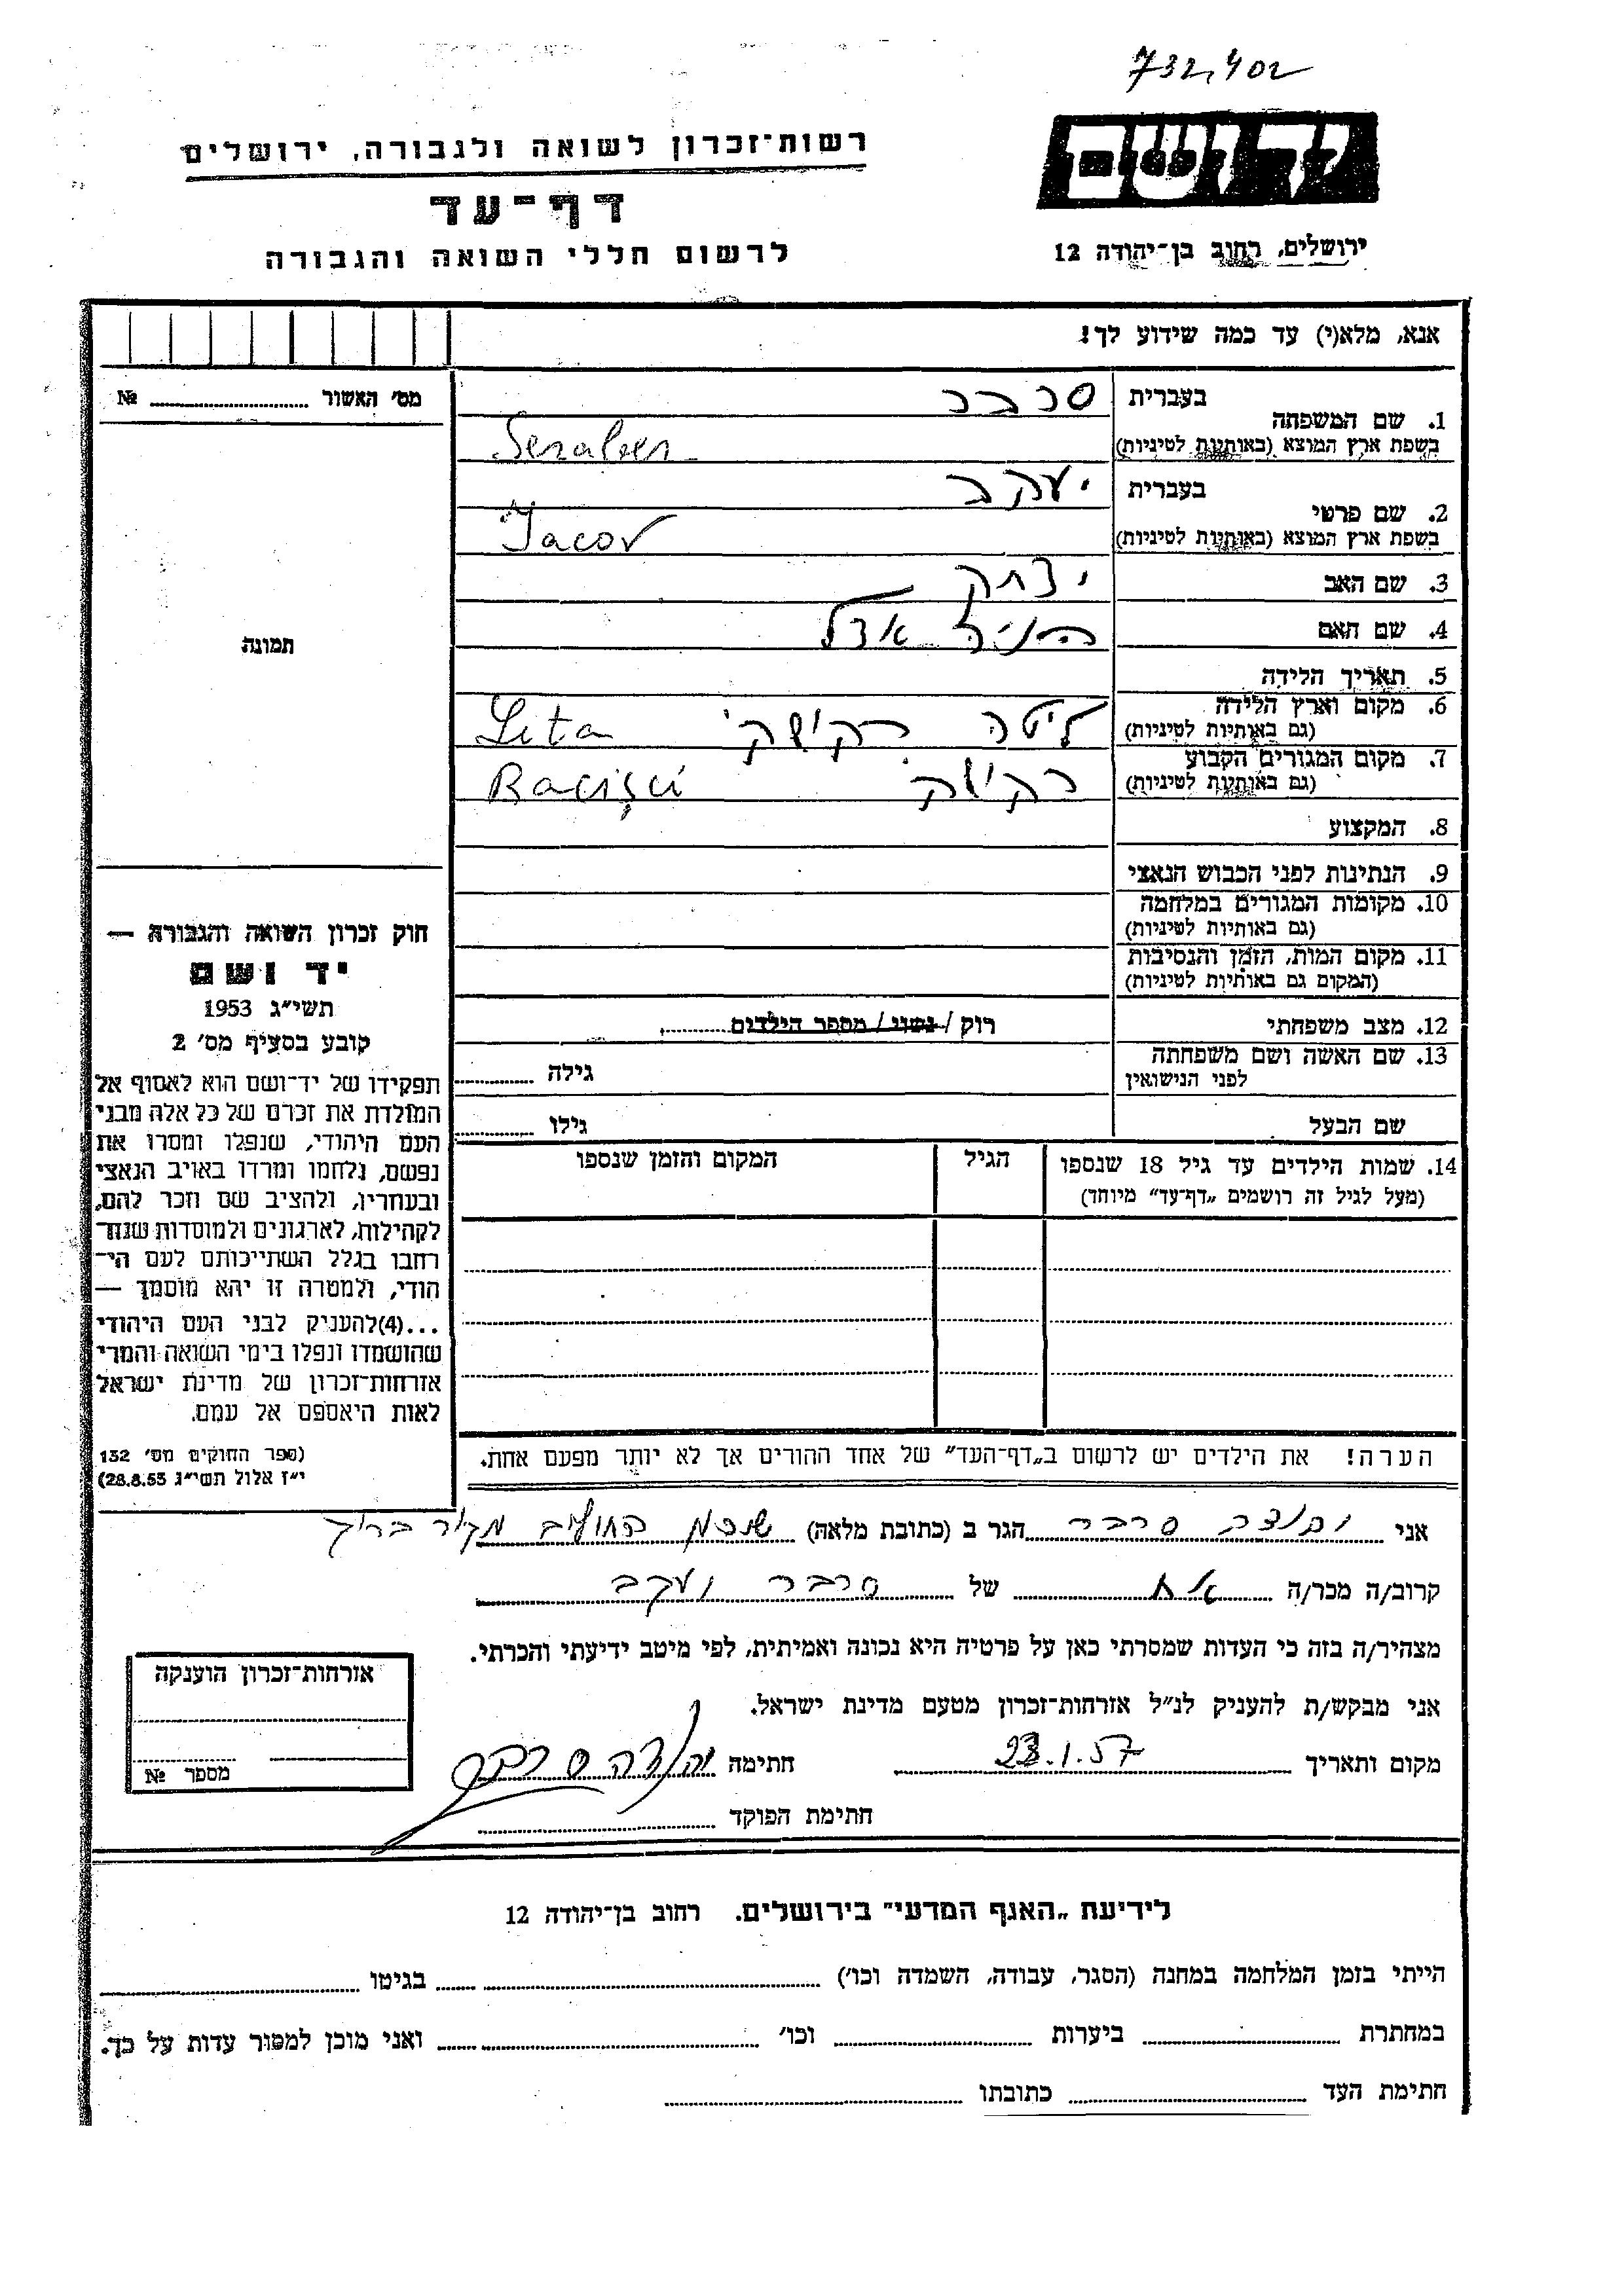 732,402
ידושם
רשות־זכרון לשואה ולגבורה, ירושלים
דף־עד
לרשום חללי השואה והגבורה
ירושלים, רחוב בן־יהודה 12
אנא, מלא(י) עד כמה שידוע לך!
מס' האשור № 
1. שם המשפחה בעברית סרבר
בשפת ארץ המוצא (באותיות לטיניות)
2. שם פרטי בעברית יעקב
בשפת ארץ המוצא (באותיות לטיניות) Jacov
3. שם האב יצחק
4. שם האם
תמונה
5. תאריך הלידה
6. מקום וארץ הלידה (גם באותיות לטיניות) ליטה רקישקי Lita
7. מקום המגורים הקבוע (גם באותיות לטיניות) רקישקי Racişci
8. המקצוע
9. הנתינות לפני הכבוש הנאצי
10. מקומות המגורים במלחמה (גם באותיות לטיניות)
11. מקום המות, הזמן והנסיבות (המקום גם באותיות לטיניות)
12. מצב משפחתי רוק / נשוי / מספר הילדים
13. שם האשה ושם משפחתה לפני הנישואין גילה
שם הבעל גילו
14. שמות הילדים עד גיל 18 שנספו (מעל לגיל זה רושמים „דף־עד" מיוחד) הגיל המקום והזמן שנספו
חוק זכרון השואה והגבורה —
יד ושם
תשי"ג 1953
קובע בסעיף מס' 2
תפקידו של יד־ושם הוא לאסוף אל
המולדת את זכרם של כל אלה מבני
העם היהודי, שנפלו ומסרו את
נפשם, נלחמו ומרדו באויב הנאצי
ובעוזריו, ולהציב שם וזכר להם,
לקהילות, לארגונים ולמוסדות שנח־
רבו בגלל השתייכותם לעם הי־
הודי, ולמטרה זו יהא מוסמך —
...(4)להעניק לבני העם היהודי
שהושמדו ונפלו בימי השואה והמרי
אזרחות־זכרון של מדינת ישראל
לאות היאספם אל עמם.
(ספר החוקים מס' 132
י"ז אלול תשי"ג 28.8.53)
הערה! את הילדים יש לרשום ב„דף־העד" של אחד ההורים אך לא יותר מפעם אחת.
אני סרבר הגר ב (כתובת מלאה) מקור ברוך
קרוב/ה מכר/ה אח של סרבר יעקב
מצהיר/ה בזה כי העדות שמסרתי כאן על פרטיה היא נכונה ואמיתית, לפי מיטב ידיעתי והכרתי.
אני מבקש/ת להעניק לנ"ל אזרחות־זכרון מטעם מדינת ישראל.
מקום ותאריך 23.1.57 חתימה יהודה סרבר
חתימת הפוקד
אזרחות־זכרון הוענקה
מספר №
לידיעת „האגף המדעי" בירושלים. רחוב בן־יהודה 12
הייתי בזמן המלחמה במחנה (הסגר, עבודה, השמדה וכו') בגיטו
במחתרת ביערות וכו' ואני מוכן למסור עדות על כך.
חתימת העד כתובתו